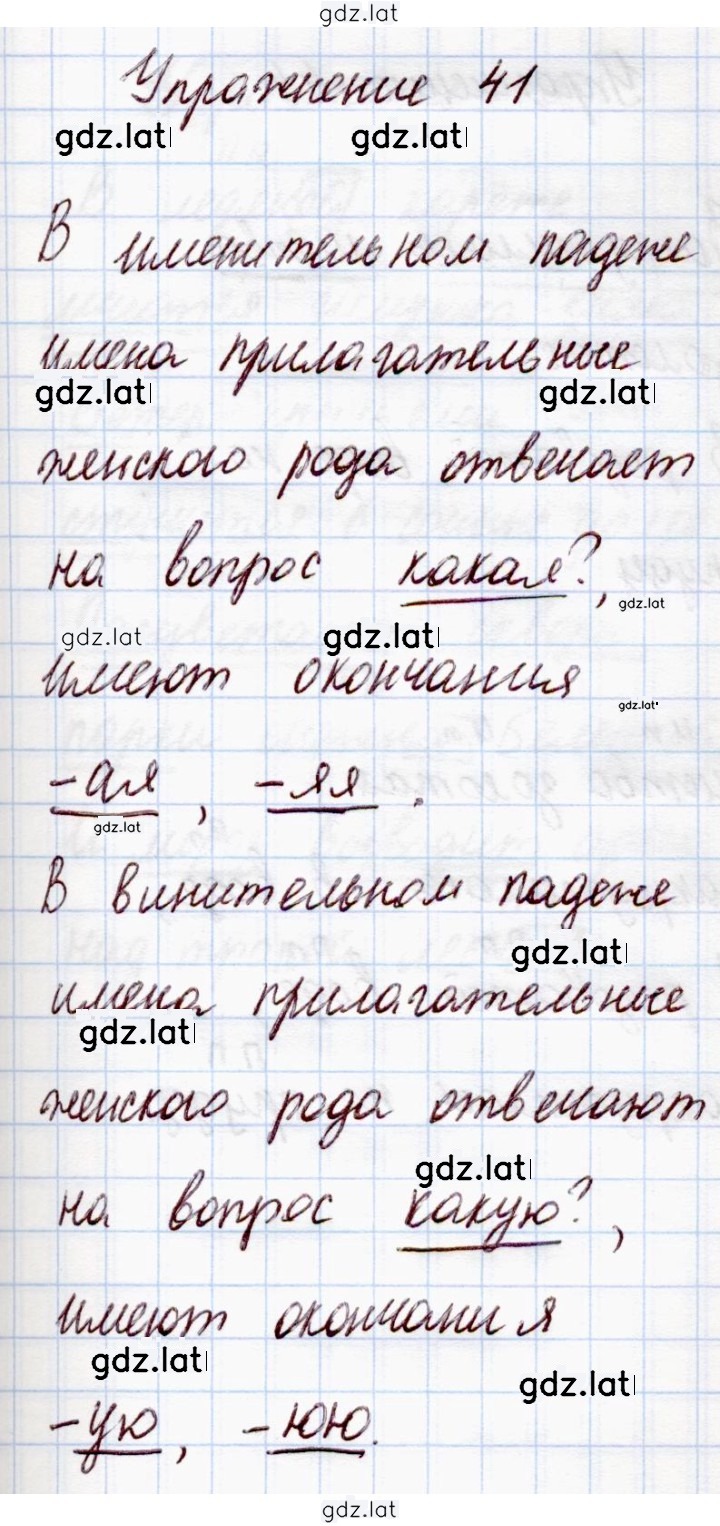 gdz.lat
Упражнение 41
gdz.lat gdz.lat
В именительном падеже
имена прилагательные
gdz.lat gdz.lat
женского рода отвечает
на вопрос какая?,
gdz.lat
gdz.lat gdz.lat
имеют окончания
gdz.lat
-ая, -яя.
gdz.lat
В винительном падеже
gdz.lat
имена прилагательные
gdz.lat
женского рода отвечают
gdz.lat
на вопрос какую?,
имеют окончания
gdz.lat gdz.lat
-ую, -юю.
gdz.lat